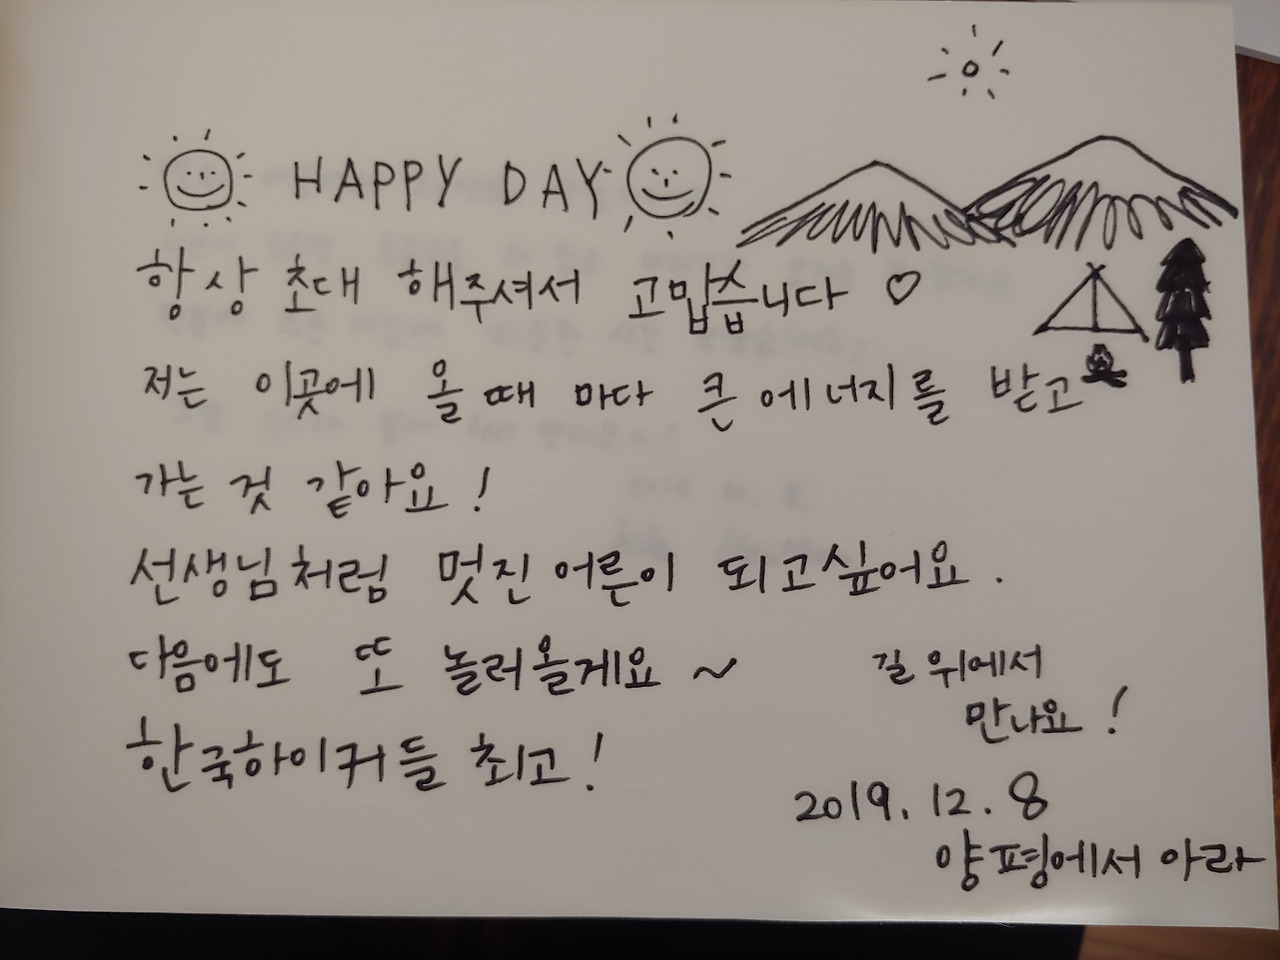 HAPPY DAY
항상 초대 해주셔서 고맙습니다 ♡
저는 이곳에 올 때 마다 큰 에너지를 받고
가는 것 같아요!
선생님처럼 멋진 어른이 되고싶어요.
다음에도 또 놀러올게요 ~
한국하이커들 최고!
길 위에서
만나요!
2019. 12. 8
양평에서 아라